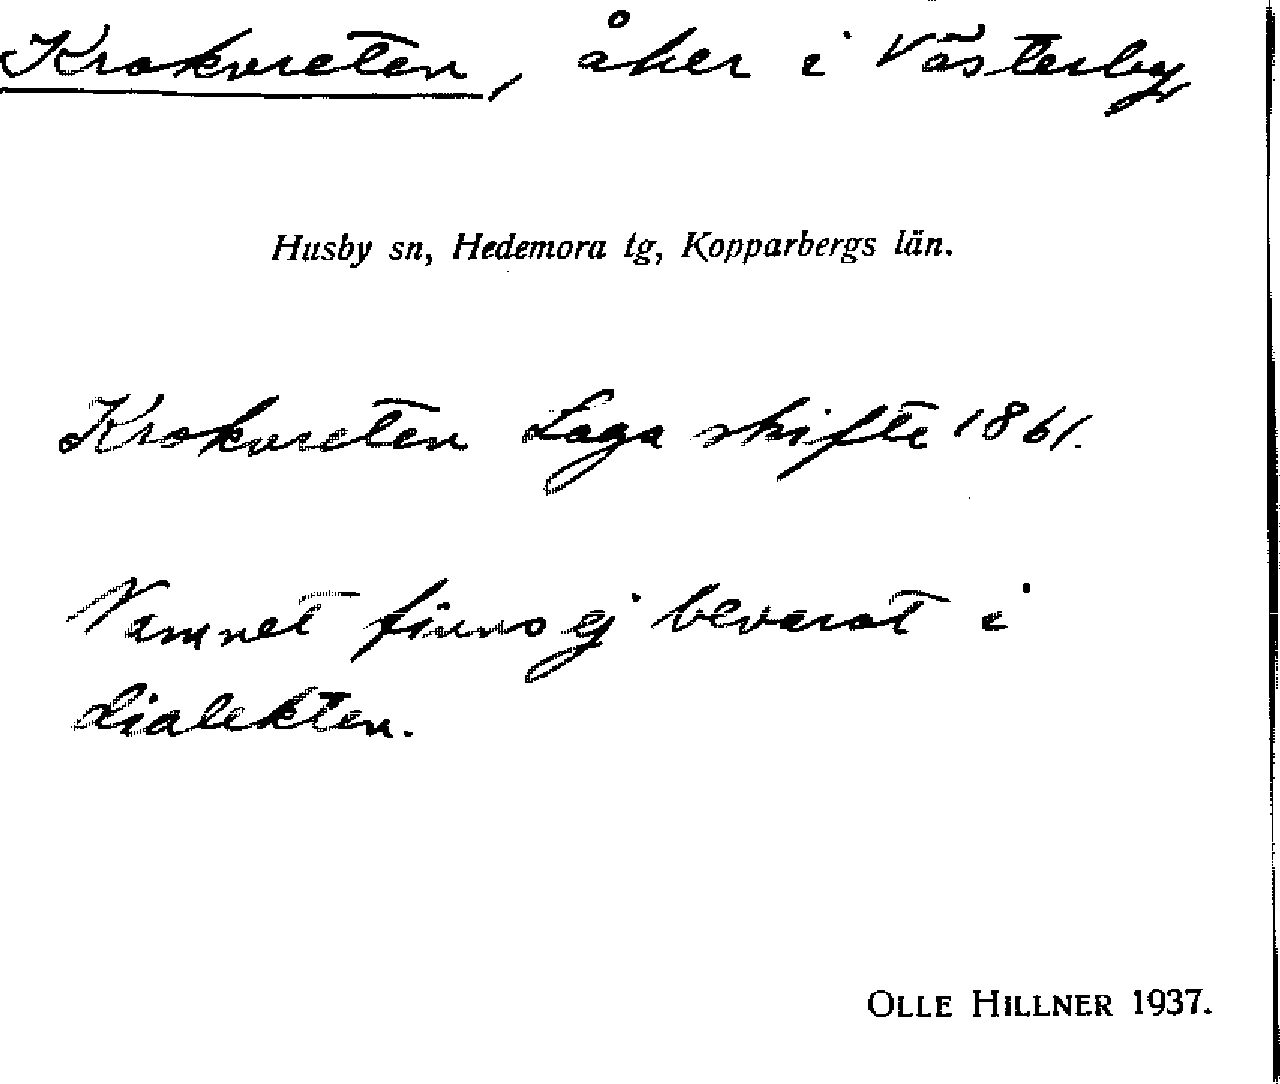 Krokvreten, åker i Västerby
Husby sn, Hedemora tg, Kopparbergs län.
Krokvreten Laga skifte 1861.
Namnet finns ej bevarat i
dialekten.
OLLE HILLNER 1937.